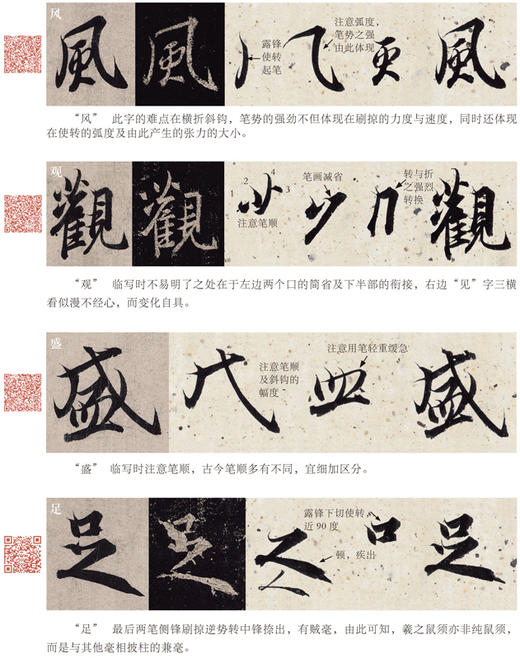 风
風 風 風
露锋
使转
起笔
注意弧度，
笔势之强
由此体现
“风” 此字的难点在横折斜钩，笔势的强劲不但体现在刷掠的力度与速度，同时还体现
在使转的弧度及由此产生的张力的大小。
观
觀 觀 觀
1 2 3 4
注意笔顺
笔画减省
转与折
之强烈
转换
“观” 临写时不易明了之处在于左边两个口的简省及下半部的衔接，右边“见”字三横
看似漫不经心，而变化自具。
盛
盛 盛
注意笔顺
及斜钩的
幅度
注意用笔轻重缓急
“盛” 临写时注意笔顺，古今笔顺多有不同，宜细加区分。
足
足 足 足
露锋下切使转，
近 90 度
顿，疾出
“足” 最后两笔侧锋刷掠逆势转中锋捺出，有贼毫，由此可知，羲之鼠须亦非纯鼠须，
而是与其他毫相披柱的兼毫。